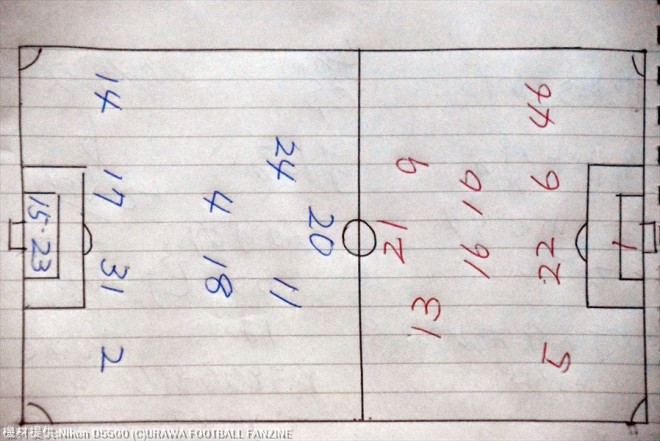 14
17
31
2
15-23
4
18
24
20
11
9
21
13
10
16
46
6
22
5
1
機材提供:Nikon D5500 (C)URAWA FOOTBALL FANZINE